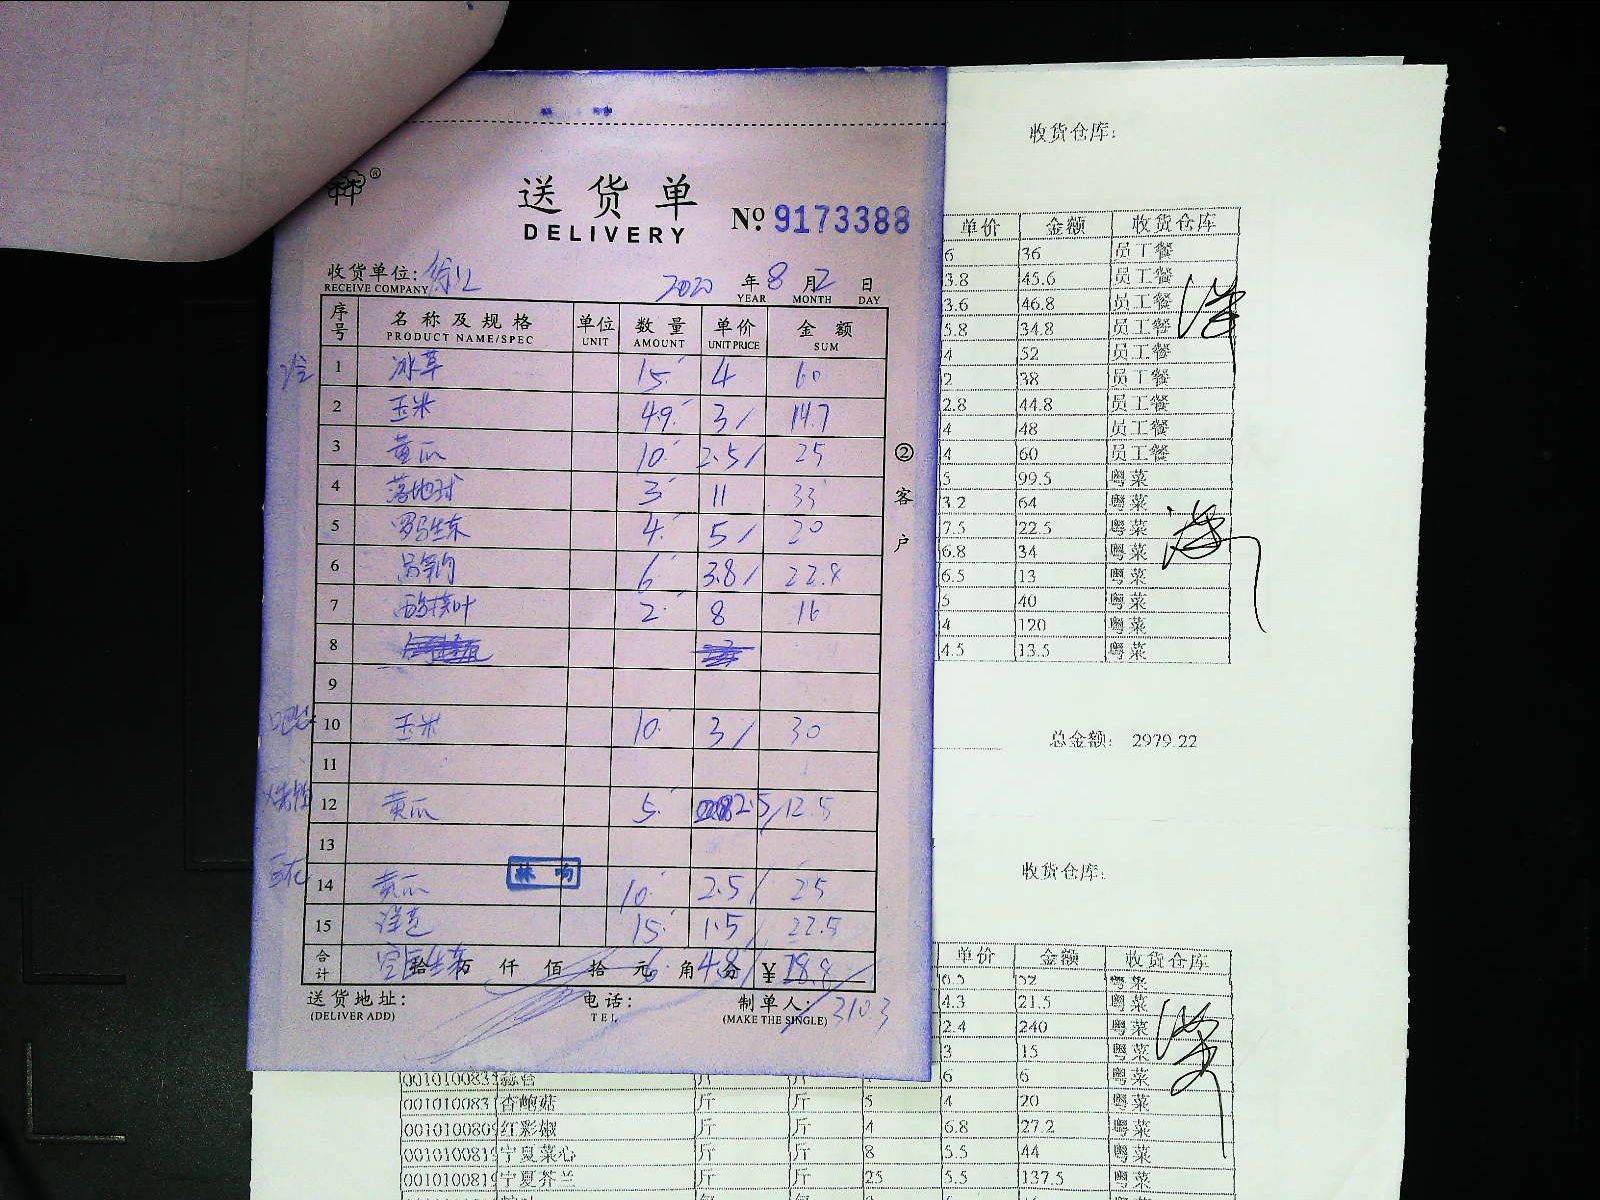 送货单
DELIVERY
№ 9173388
收货单位: 徐汇 2020 年 8 月 2 日
RECEIVE COMPANY YEAR MONTH DAY
序号 名称及规格 单位 数量 单价 金额
PRODUCT NAME/SPEC UNIT AMOUNT UNIT PRICE SUM
冷 1 冰草 15 4 60
2 玉米 4.9 3 14.7
3 黄瓜 10 2.5 25
4 落地球 3 11 33
5 罗马生菜 4 5 20
6 6 3.8 22.8
7 酸模叶 2 8 16
8
9
10 玉米 10 3 30
11
12 黄瓜 5 2.5 12.5
13
林响
14 黄瓜 10 2.5 25
15 洋芝 15 1.5 22.5
合计 拾 万 仟 佰 拾 元 角 分 ¥
6 4.8 28.8
送货地址: 电话: 制单人: 3103
(DELIVER ADD) TEL (MAKE THE SINGLE)
②客户
收货仓库:
单价 金额 收货仓库
6 36 员工餐
3.8 45.6 员工餐
3.6 46.8 员工餐
5.8 34.8 员工餐
4 52 员工餐
2 38 员工餐
2.8 44.8 员工餐
4 48 员工餐
4 60 员工餐
5 99.5 粤菜
3.2 64 粤菜
7.5 22.5 粤菜
6.8 34 粤菜
6.5 13 粤菜
5 40 粤菜
4 120 粤菜
4.5 13.5 粤菜
总金额: 2979.22
收货仓库:
单价 金额 收货仓库
6.5 52 粤菜
4.3 21.5 粤菜
2.4 240 粤菜
3 15 粤菜
0010100833 蒜苔 斤 斤 6 6 粤菜
0010100831 香鲍菇 斤 斤 5 4 20 粤菜
0010100809 红彩椒 斤 斤 4 6.8 27.2 粤菜
0010100819 宁夏菜心 斤 斤 8 5.5 44 粤菜
0010100819 宁夏芥兰 斤 斤 25 5.5 137.5 粤菜